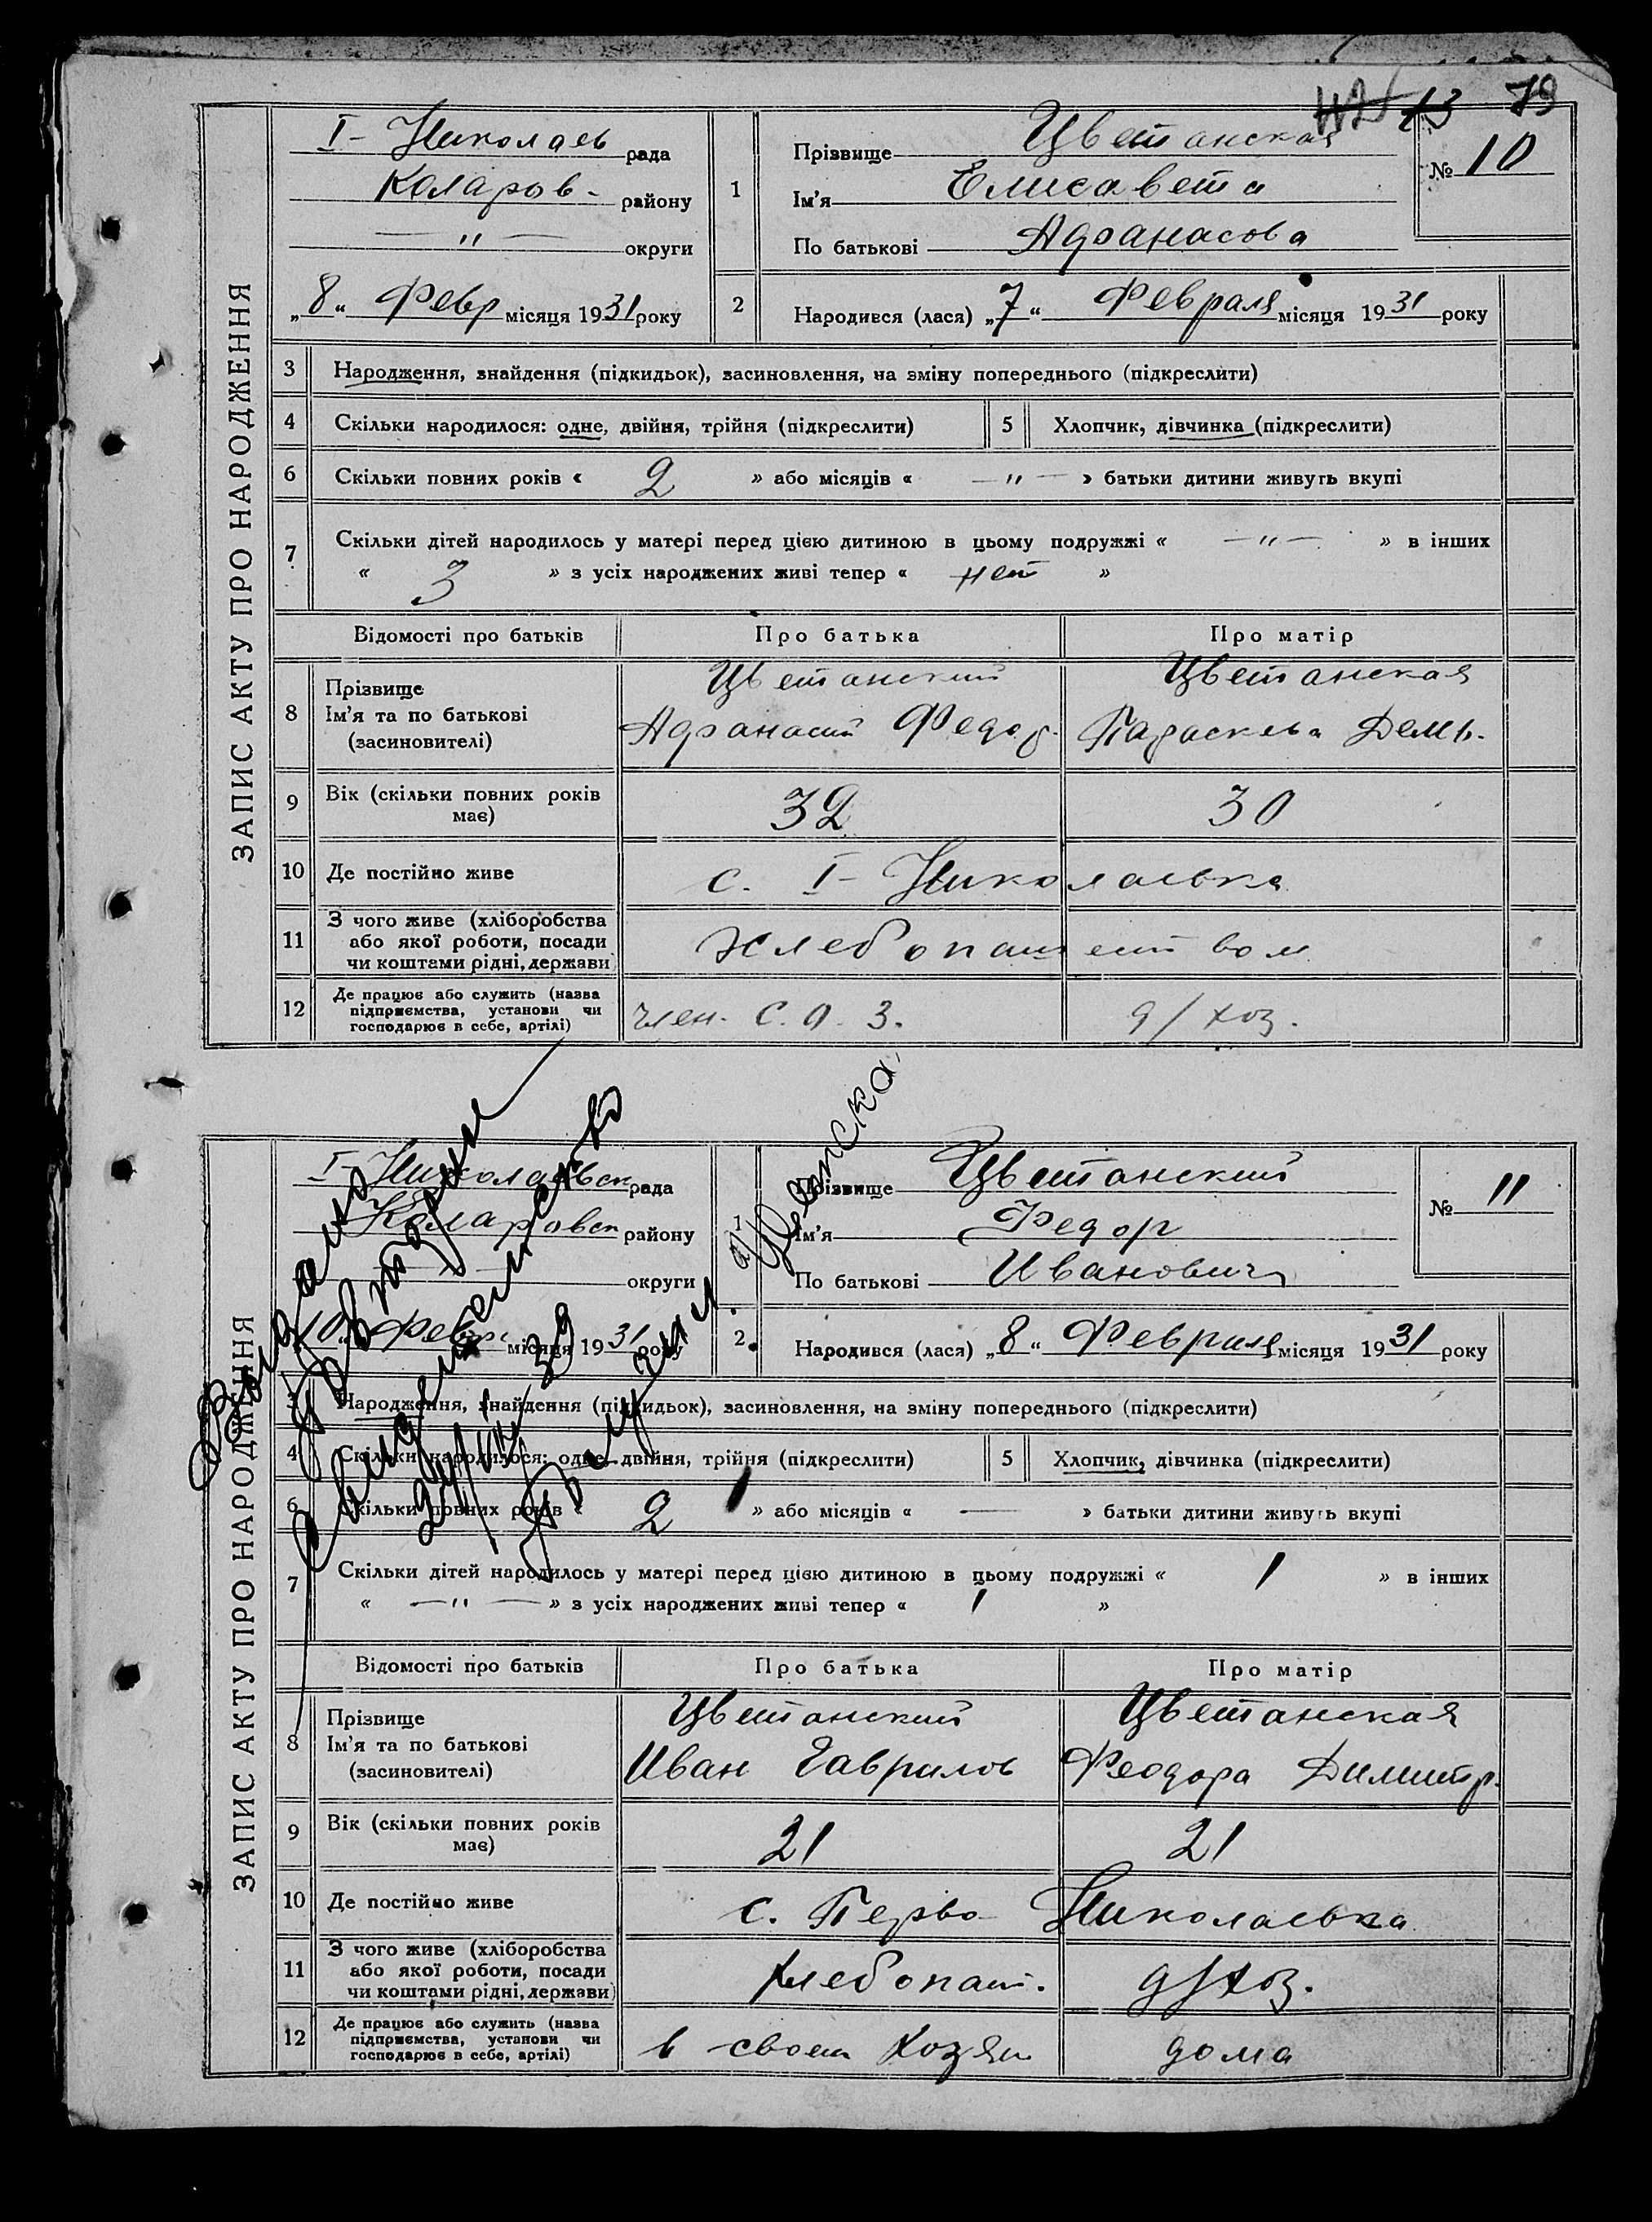 13 79
І- Николаев рада
Коларов- району
— " — округи
„8" Февр місяця 1931 року
1
Прізвище Цветанская
Ім'я Елисавета
По батькові Афанасова
№ 10
2
Народився (лася) „7" Февраля місяця 1931 року
ЗАПИС АКТУ ПРО НАРОДЖЕННЯ
3 Народження, знайдення (підкидьок), засиновлення, на зміну попереднього (підкреслити)
4 Скільки народилося: одне, двійня, трійня (підкреслити) 5 Хлопчик, дівчинка (підкреслити)
6 Скільки повних років « 2 » або місяців « — " — » батьки дитини живуть вкупі
7 Скільки дітей народилось у матері перед цією дитиною в цьому подружжі « — " — » в інших
« 3 » з усіх народжених живі тепер « нет »
Відомості про батьків Про батька Про матір
8 Прізвище Цветанский Цветанская
Ім'я та по батькові Афанасий Федор. Параскева Демь.
(засиновителі)
9 Вік (скільки повних років має) 32 30
10 Де постійно живе с. І- Николаевка
11 З чого живе (хліборобства
або якої роботи, посади
чи коштами рідні, держави) Хлебопашеством
12 Де працює або служить (назва
підприємства, установи чи
господарює в себе, артілі) член. С.О.З. д/хоз.
І-Николаевск рада
Коларовск району
— округи
„10" Февр. місяця 1931 року
1
Прізвище Цветанский
Ім'я Федор
По батькові Иванович
№ 11
2
Народився (лася) „8" Февраля місяця 1931 року
Выдано
повторно
свидетельство
Цветанска
ЗАПИС АКТУ ПРО НАРОДЖЕННЯ
3 Народження, знайдення (підкидьок), засиновлення, на зміну попереднього (підкреслити)
4 Скільки народилося: одне, двійня, трійня (підкреслити) 5 Хлопчик, дівчинка (підкреслити)
6 Скільки повних років « 2 » або місяців « — » батьки дитини живуть вкупі
7 Скільки дітей народилось у матері перед цією дитиною в цьому подружжі « 1 » в інших
« — " — » з усіх народжених живі тепер « 1 »
Відомості про батьків Про батька Про матір
8 Прізвище Цветанский Цветанская
Ім'я та по батькові Иван Гаврилов Феодора Димитр.
(засиновителі)
9 Вік (скільки повних років має) 21 21
10 Де постійно живе с. Перво- Николаевка
11 З чого живе (хліборобства
або якої роботи, посади
чи коштами рідні, держави) хлебопаш. д/хоз.
12 Де працює або служить (назва
підприємства, установи чи
господарює в себе, артілі) в своем хозяи дома